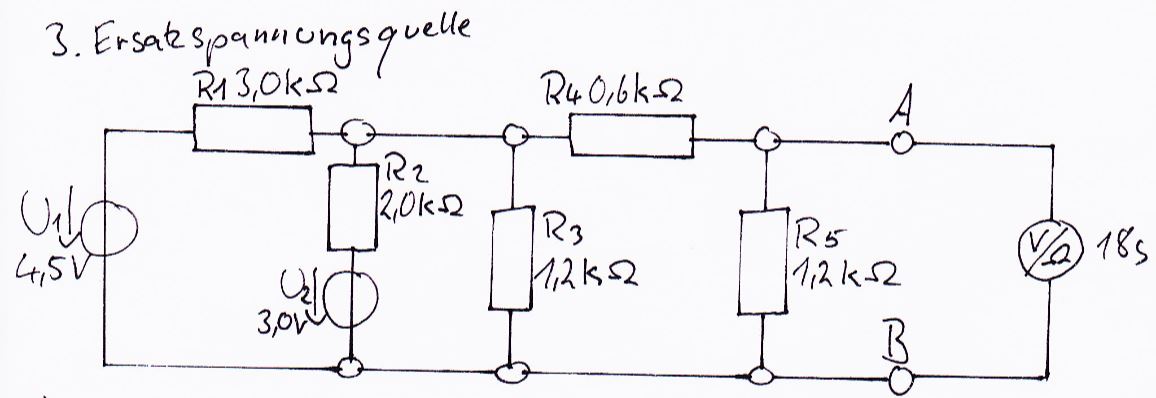 3. Ersatzspannungsquelle
R1 3,0kΩ
R4 0,6kΩ
A
R2
2,0kΩ
U1
4,5V
R3
1,2kΩ
R5
1,2kΩ
V/Ω 18s
U2
3,0V
B